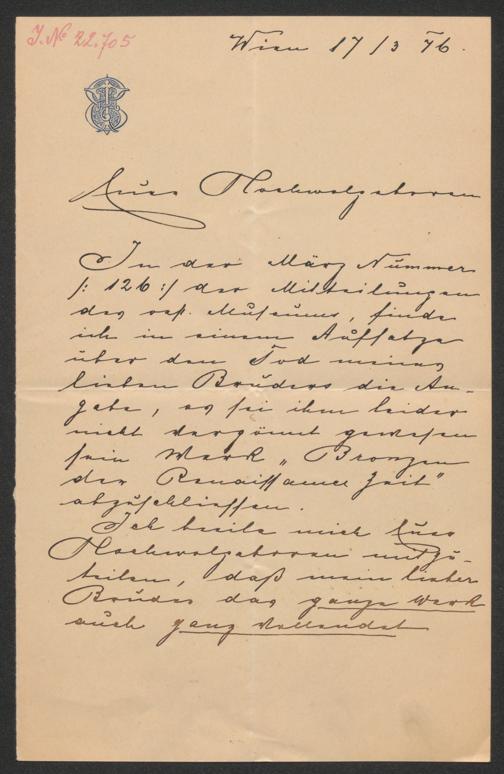 J. № 22.705
Wien 17/3 76.
Euer Hochwolgeboren
In der März Nummer
/: 126 :/ der Mitteilungen
des oest. Museums, finde
ich in einem Aufsatze
über den Tod meines
lieben Bruders die An-
gabe, es sei ihm leider
nicht vergönnt gewesen
sein Werk „Bronzen
der Renaissance Zeit"
abzuschliessen.
Ich beeile mich Euer
Hochwolgeboren mitzu-
teilen, daß mein lieber
Bruder das ganze Werk
auch ganz vollendet